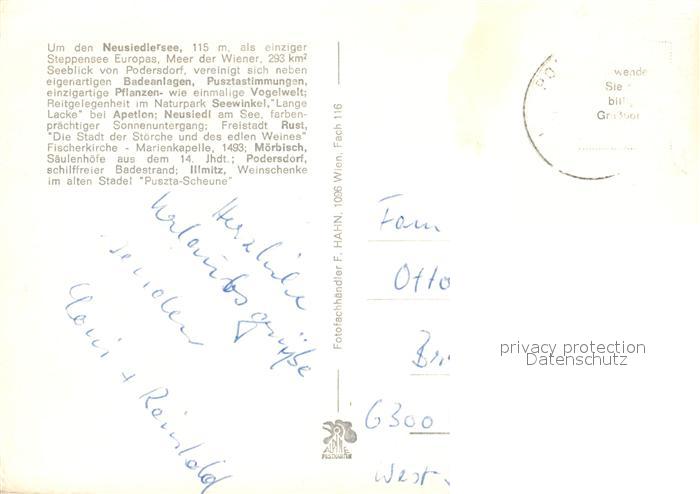 Um den Neusiedlersee, 115 m, als einziger
Steppensee Europas, Meer der Wiener, 293 km²
Seeblick von Podersdorf, vereinigt sich neben
eigenartigen Badeanlagen, Pusztastimmungen,
einzigartige Pflanzen- wie einmalige Vogelwelt;
Reitgelegenheit im Naturpark Seewinkel, "Lange
Lacke" bei Apetlon; Neusiedl am See, farben-
prächtiger Sonnenuntergang; Freistadt Rust,
"Die Stadt der Störche und des edlen Weines"
Fischerkirche - Marienkapelle, 1493; Mörbisch,
Säulenhöfe aus dem 14. Jhdt.; Podersdorf,
schilffreier Badestrand; Illmitz, Weinschenke
im alten Stadel "Puszta-Scheune"
Herzliche
Urlaubsgrüße
senden
+ Reinhold
Fotofachhändler F. HAHN, 1096 Wien, Fach 116
ALPINE
POSTKARTEN
PO
wende
Sie
bill
Fam
Otto
6300
West-
privacy protection
Datenschutz